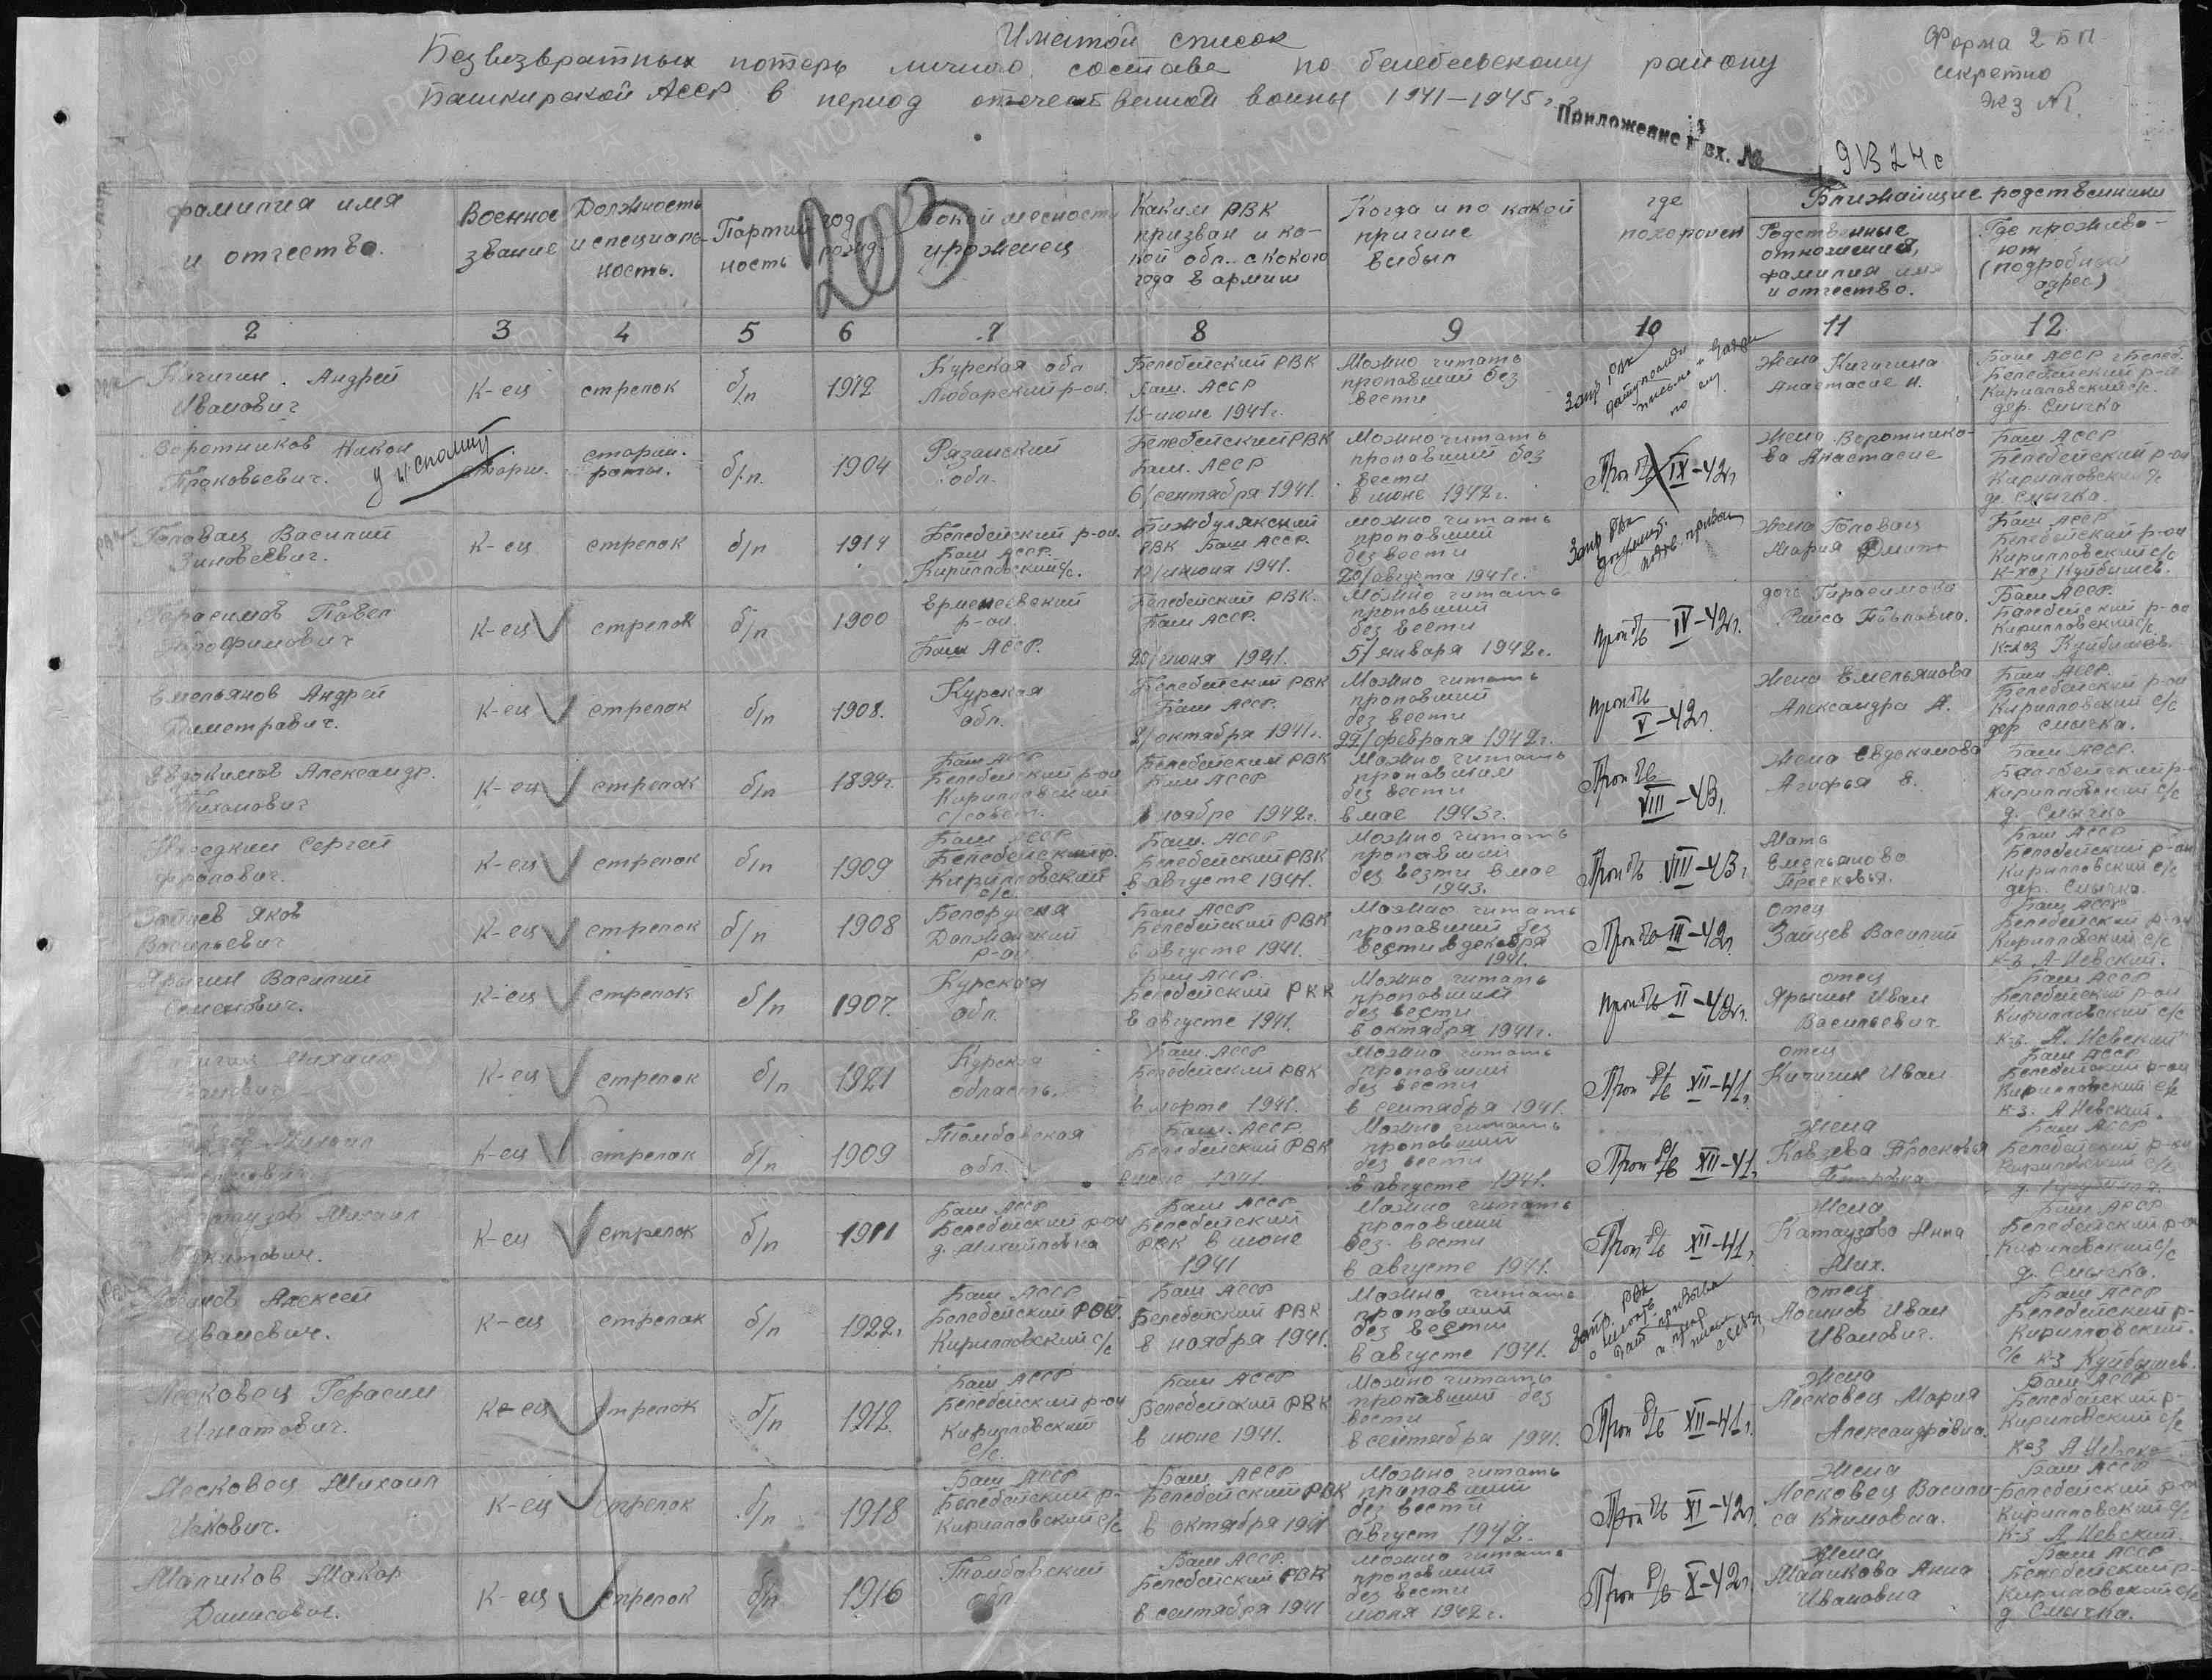 Именой список
Безвизвратных потерь личного состава по белебеевскому району
Башкирской АССР в период отечественной войны 1941-1945 г.
Форма 2 БП
секретно
экз №1
Приложение к вх. № 91324с
203
фамилия имя
и отчество.
Военное
звание
Должность
и специаль-
ность.
Партий
ность
год
рожд.
Какой месности
уроженец
Каким РВК
призван и ка-
кой обл. с какого
года в армии
Когда и по какой
причине
выбыл
где
похоронен
Ближайщие родственники
Родственные
отношения,
фамилия имя
и отчество.
Где прожива-
ют
(подробный
адрес)
2 3 4 5 6 7 8 9 10 11 12
Кичигин Андрей
Иванович
к-ец
стрелок
б/п
1912
Курская обл
Любарский р-он.
Белебейский РВК
Баш. АССР
15-июне 1941г.
Можно читать
пропавший без
вести
Запр РВК
Жена Кичигина
Анастасие И.
Баш АССР г Белеб.
Белебейский р-н
Кирилловский с/с.
дер. Смычка
Воротников Никон
Проковьевич.
старш.
старши.
роты.
б/п.
1904
Рязанский
обл.
Белебейский РВК
Баш. АССР
6/сентября 1941.
Можно читать
пропавший без
вести
в июне 1942г.
Проп б/в IX-42г
Жена Воротнико-
ва Анастасие
Баш АССР
Белебейский р-он
Кирилловский с/с
д. Смычка.
Головач Василий
Зиновеевич.
к-ец
стрелок
б/п
1914
Белебейский р-он.
Баш АССР.
Кирилловский с/с.
Бижбулякский
РВК Баш АССР.
12/июня 1941.
Можно читать
пропавший
без вести
20/августа 1941г.
Запр РВК
докумен.
подтв. призыв
Жена Головач
Мария Дмит
Баш АССР.
Белебейский р-он
Кирилловский с/с
к-хоз Куйбышев.
Герасимов Павел
к-ец
стрелок
б/п
1900
Ермекеевский
р-он.
Баш АССР.
Белебейский РВК.
Баш АССР.
22/июня 1941.
Можно читать
пропавший
без вести
5/января 1942г.
Проп б/в IV-42г.
дочь Герасимова
Раиса Павловна.
Баш АССР.
Белебейский р-он
Кирилловский с/с.
к-хоз Куйбышев.
Емельянов Андрей
Диметравич.
к-ец
стрелок
б/п
1908.
Курская
обл.
Белебейский РВК
Баш АССР.
2/октября 1941г.
Можно читать
пропавший
без вести
22/февраля 1942г.
Проп б/в
V-42г
Жена Емельянова
Александра А.
Баш АССР.
Белебейский р-он
Кирилловский с/с
дер Смычка.
Евдокимов Александр.
Тихонович
к-ец
стрелок
б/п
1899г.
Баш АССР
Белебейский р-он
Кирилловский
с/совет.
Белебейский РВК
Баш АССР
в ноябре 1942г.
Можно читать
пропавшим
без вести
в мае 1943г.
Проп б/в
VIII-43г.
Жена Евдокамова
Агифья Е.
Баш АССР.
Белебейский р-
Кирилловский с/с
д. Смычка
Сергей
Фролович.
к-ец
стрелок
б/п
1909
Баш АССР
Белебейский р.
Кирилловский
с/с.
Баш. АССР
Белебейский РВК
в августе 1941.
Можно читать
пропавший
без вести в мае
1943.
Проп б/в VIII-43г
Мать
Емельянова
Пресковья.
Баш АССР
Белебейский р-он
Кирилловский с/с
дер. Смычка.
Зайцев Яков
Васильевич
к-ец
стрелок
б/п
1908
Белоруссия
Должанский
р-он.
Баш АССР
Белебейский РВК
в августе 1941.
Можно читать
пропавший без
вести в декабря
1941.
Проп б/в III-42г
отец
Зайцев Василий
Баш АССР
Белебейский р-он
Кирилловский с/с
к-з А-Невский.
Ярыгин Василий
Семенович.
к-ец
стрелок
б/п
1907.
Курская
обл.
Баш АССР.
Белебейский РКК
в августе 1941.
Можно читать
пропавший
без вести
в октября 1941г.
Проп б/в II-42г.
отец
Ярыгин Иван
Васильевич.
Баш АССР
Белебейский р-он
Кирилловский с/с
к-з. А. Невский
Михаил
к-ец
стрелок
б/п
1921
Курская
область.
Баш. АССР
Белебейский РВК
в марте 1941.
Можно читать
пропавший
без вести
в сентября 1941.
Проп б/в XII-41г.
отец
Кичигин Иван
Баш АССР
Белебейский р-он
Кирилловский с/с
к-з. А Невский.
Михаил
к-ец
стрелок
б/п
1909
Томбовская
обл.
Баш. АССР.
Белебейский РВК
в июне 1941
Можно читать
пропавший
без вести
в августе 1941.
Проп б/в XII-41г.
Жена
Ковзева Просковья
Петровна
Баш АССР
Белебейский р-он
Кирилловский с/с
Михаил
Никитович.
к-ец
стрелок
б/п
1911
Баш АССР
Белебейский р-он
д. Михайловка
Баш АССР
Белебейский
РВК в июне
1941
Можно читать
пропавший
без. вести
в августе 1941.
Проп б/в XII-41г.
Жена
Катаузова Анна
Мих.
Баш АССР
Белебейский р-он
Кирилловский с/с
д. Смычка.
Алексей
Иванович.
к-ец
стрелок
б/п
1922г.
Баш АССР
Белебейский РОЙ.
Кирилловский с/с
Баш АССР
Белебейский РВК
в ноября 1941.
Можно читать
пропавший
без вести
в августе 1941.
Запр. РВК
отец
Логинов Иван
Иванович.
Баш АССР
Белебейский р-
Кирилловский.
с/с к-з Куйбышев.
Лесковец Герасим
Игнатович.
к-ец
стрелок
б/п
1912
Баш АССР
Белебейский р-он
Кирилловский
с/с.
Баш АССР
Белебейский РВК
в июне 1941.
Можно читать
пропавший без
вести
в сентября 1941.
Проп б/в XII-41г.
Жена
Лесковец Мария
Александровна.
Баш АССР
Белебейский р-
Кирилловский с/с
к-з А Невско
Лесковец Михаил
к-ец
стрелок
б/п
1918
Баш АССР
Белебейский р-
Кирилловский с/с
Баш АССР
Белебейский РВК
в октября 1941
Можно читать
пропавший
без вести
август 1942.
Проп б/в XI-42г
Жена
Лесковец Васили-
са Климовна.
Баш АССР
Белебейский р-он
Кирилловский с/с
к-з А Невский.
Маликов Макар
Данисович.
к-ец
стрелок
б/п
1916
Томбовский
обл
Баш АССР.
Белебейский РВК
в сентября 1941
Можно читать
пропавший
без вести
июня 1942г.
Проп б/в X-42г
Жена
Маликова Анна
Ивановна
Баш АССР
Белебейский р-
Кирилловский с/с
д Смычка.